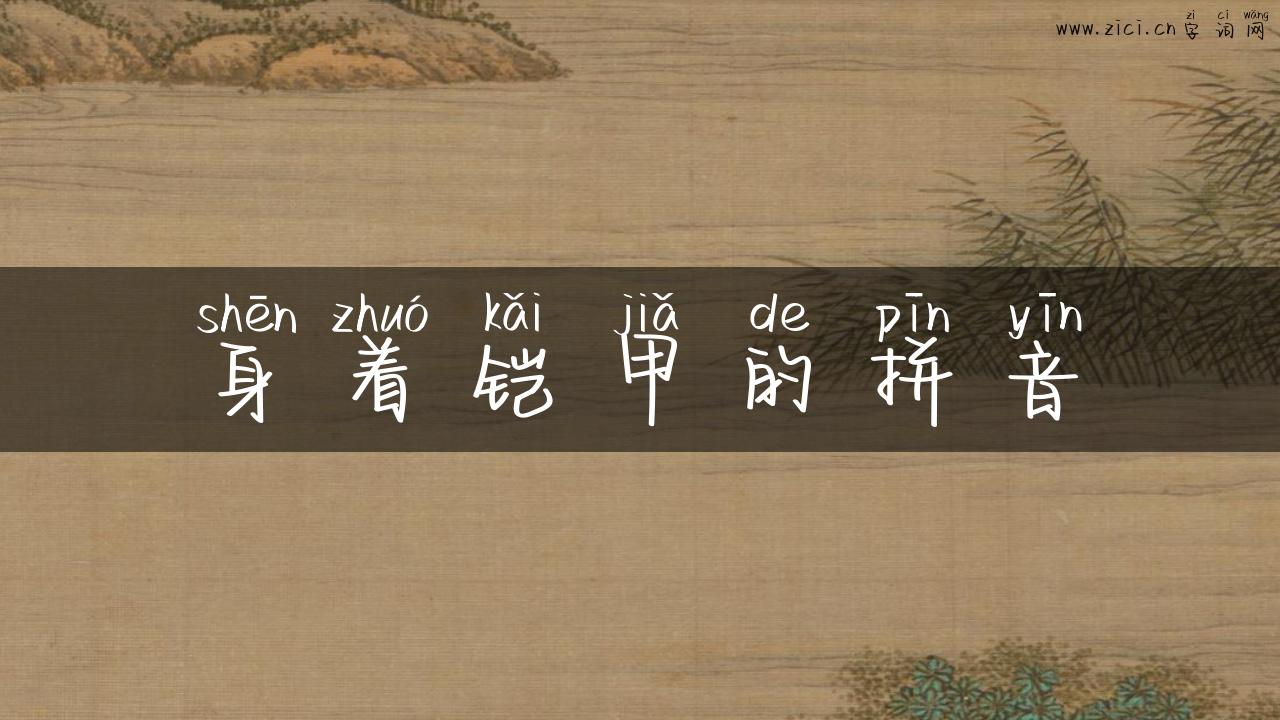 zì cí wǎng
www.zici.cn 字词网
shēn zhuó kǎi jiǎ de pīn yīn
身着铠甲的拼音